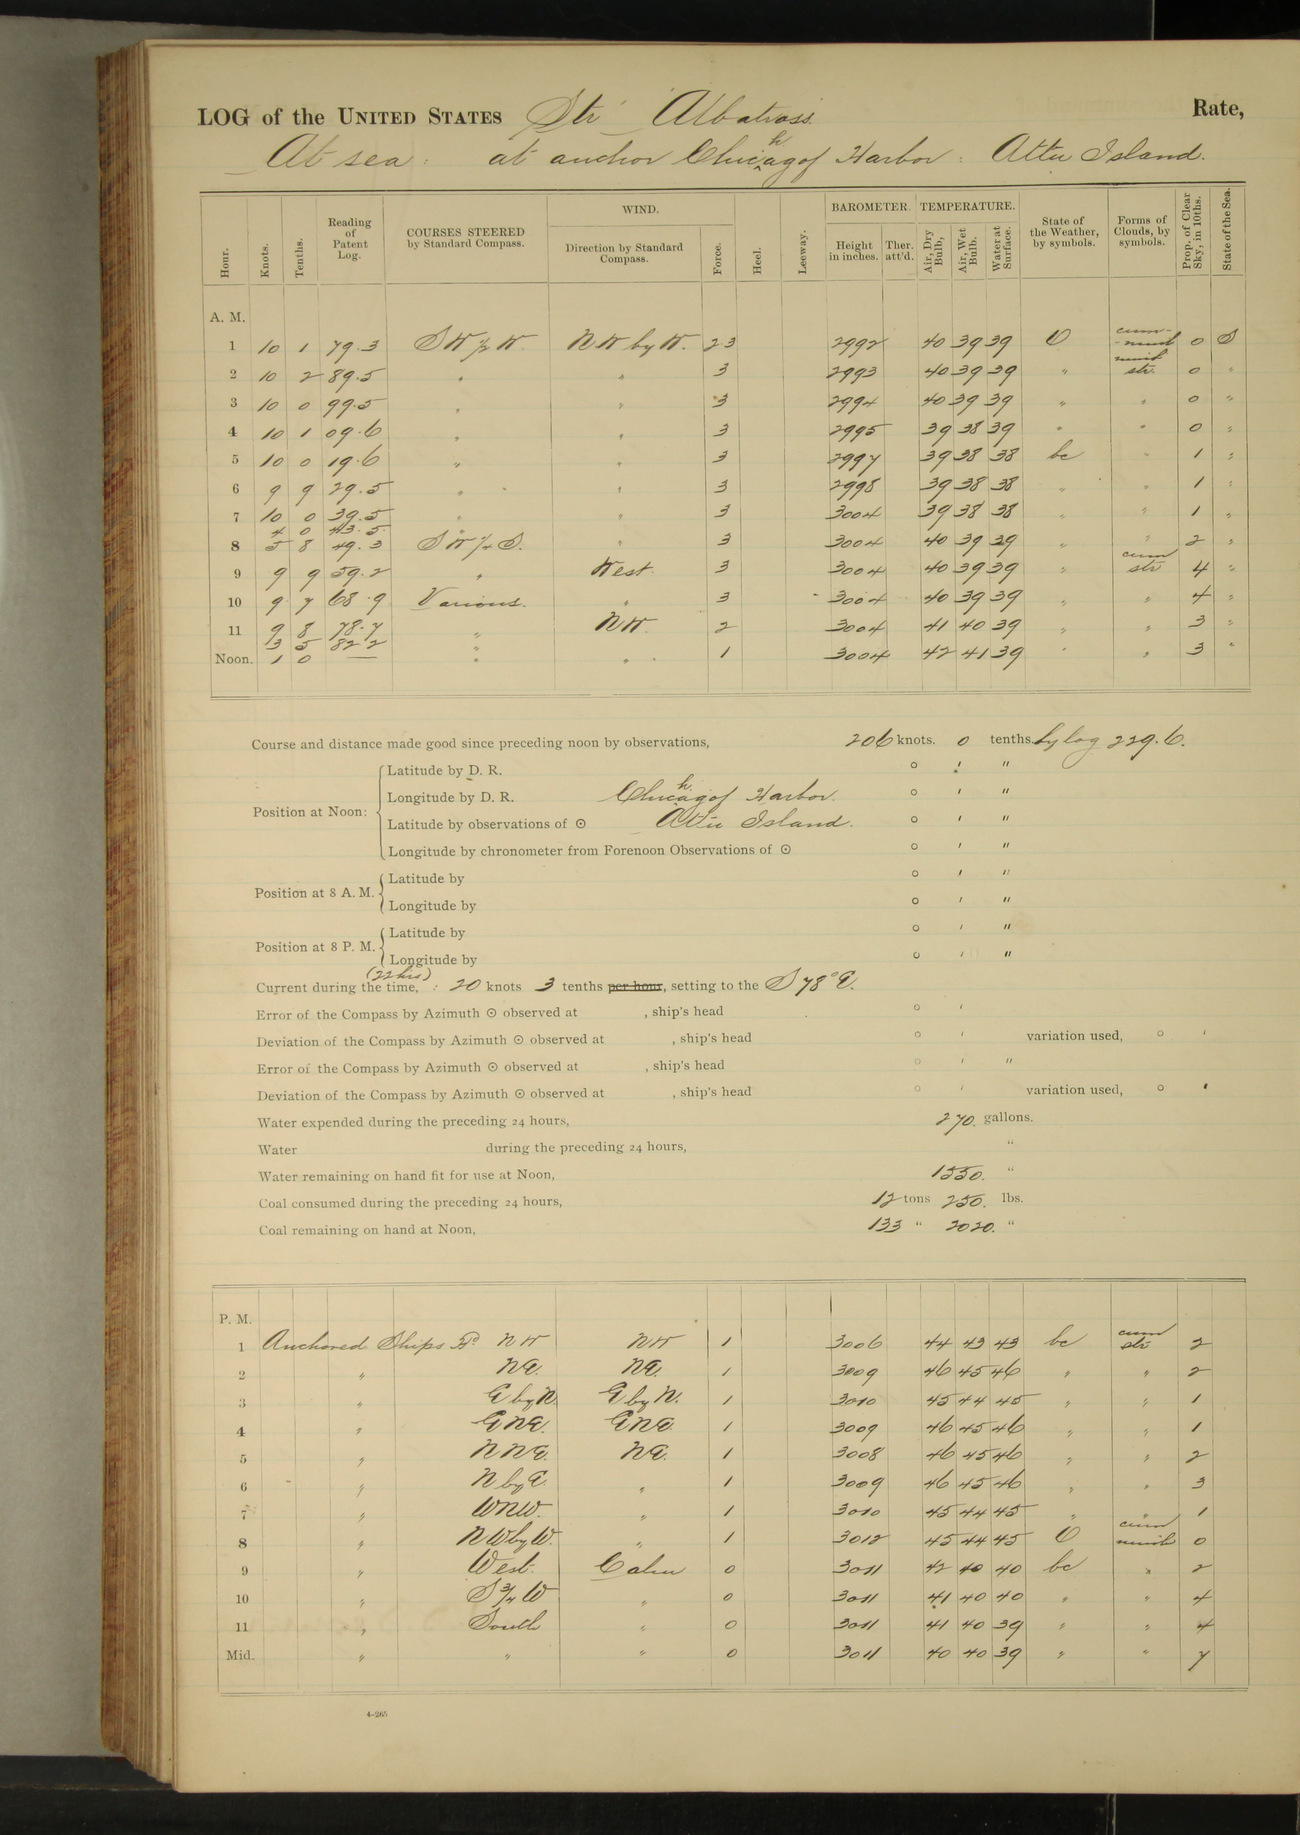 LOG of the UNITED STATES Str Albatross. Rate,
At sea: at anchor Chichagof Harbor: Attu Island.
Hour. Knots. Tenths. Reading of Patent Log. COURSES STEERED by Standard Compass. WIND. Direction by Standard Compass. Force. Heel. Leeway. BAROMETER. Height in inches. Ther. att'd. TEMPERATURE. Air, Dry Bulb, Air, Wet Bulb. Water at Surface. State of the Weather, by symbols. Forms of Clouds, by symbols. Prop. of Clear Sky, in 10ths. State of the Sea.
A. M.
1 10 1 79.3 SW ½ W. NW by W. 23 2992 40 39 39 O cum-nimb 0 S
2 10 2 89.5 " " 3 2993 40 39 39 " nimb str. 0 "
3 10 0 99.5 " " 3 2994 40 39 39 " " 0 "
4 10 1 09.6 " " 3 2995 39 38 39 " " 0 "
5 10 0 19.6 " " 3 2997 39 38 38 bc " 1 "
6 9 9 29.5 " " 3 2998 39 38 38 " " 1 "
7 10 0 39.5 " " 3 3004 39 38 38 " " 1 "
4 0 43.5 "
8 5 8 49.3 SW ¼ S. " 3 3004 40 39 39 " " 2 "
9 9 9 59.2 " West. 3 3004 40 39 39 " cum str 4 "
10 9 7 68.9 Various. " 3 3004 40 39 39 " " 4 "
11 9 8 78.7 " NW. 2 3004 41 40 39 " " 3 "
3 5 82 2 "
Noon. 1 0 — " " 1 3004 42 41 39 " " 3 "
Course and distance made good since preceding noon by observations, 206 knots. 0 tenths. by log 229.6.
Position at Noon:
Latitude by D. R. ° ′ ″
Longitude by D. R. Chichagof Harbor. ° ′ ″
Latitude by observations of ☉ Attu Island. ° ′ ″
Longitude by chronometer from Forenoon Observations of ☉ ° ′ ″
Position at 8 A. M.
Latitude by ° ′ ″
Longitude by ° ′ ″
Position at 8 P. M.
Latitude by ° ′ ″
Longitude by ° ′ ″
(22 hrs)
Current during the time, : 20 knots 3 tenths per hour, setting to the S 78° E.
Error of the Compass by Azimuth ☉ observed at , ship's head ° ′
Deviation of the Compass by Azimuth ☉ observed at , ship's head ° ′ variation used, ° ′
Error of the Compass by Azimuth ☉ observed at , ship's head ° ′ ″
Deviation of the Compass by Azimuth ☉ observed at , ship's head ° ′ variation used, ° ′
Water expended during the preceding 24 hours, 270. gallons.
Water during the preceding 24 hours, "
Water remaining on hand fit for use at Noon, 1550. "
Coal consumed during the preceding 24 hours, 12 tons 250. lbs.
Coal remaining on hand at Noon, 133 " 2020. "
P. M.
1 Anchored Ships Hd NW NW 1 3006 44 43 43 bc cum str 2
2 " NE. NE. 1 3009 46 45 46 " " 2
3 " E by N. E by N. 1 3010 45 44 45 " " 1
4 " ENE. ENE 1 3009 46 45 46 " " 1
5 " NNE. NE. 1 3008 46 45 46 " " 2
6 " N by E. " 1 3009 46 45 46 " " 3
7 " WNW. " 1 3010 45 44 45 " " 1
8 " NW by W. " 1 3012 45 44 45 O cum nimb 0
9 " West. Calm 0 3011 42 40 40 bc " 2
10 " S ¾ W " 0 3011 41 40 40 " " 4
11 " South " 0 3011 41 40 39 " " 4
Mid. " " " 0 3011 40 40 39 " " 7
4-265